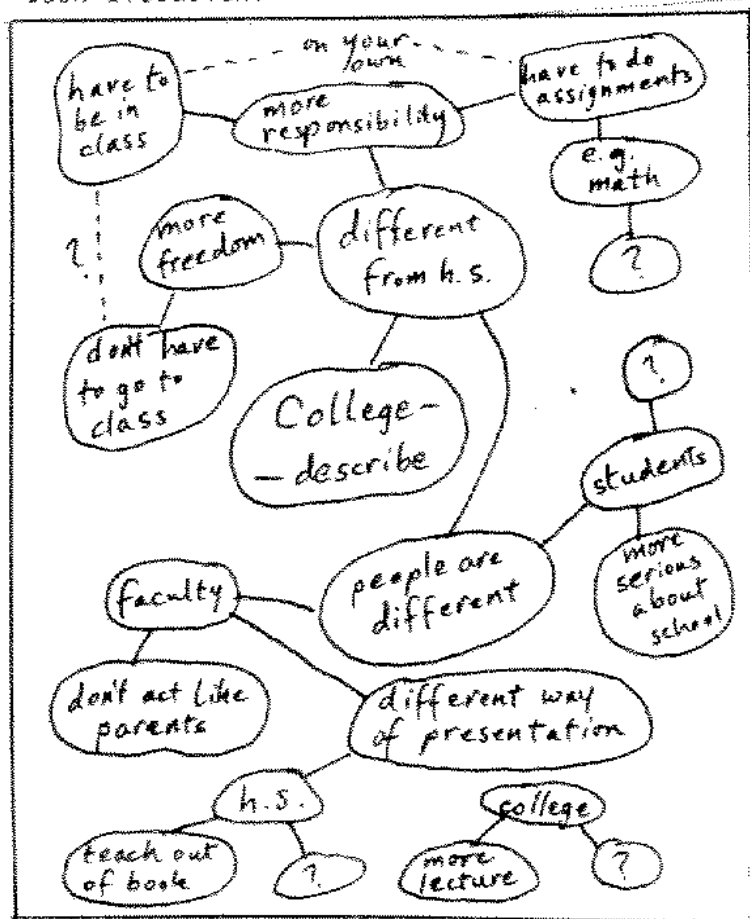 on your
own
have to
be in
class
more
responsibility
have to do
assignments
e.g.
math
?
more
freedom
different
from h.s.
?
don't have
to go to
class
College-
- describe
?
students
more
serious
about
school
people are
different
faculty
don't act like
parents
different way
of presentation
h.s.
teach out
of book
?
college
more
lecture
?